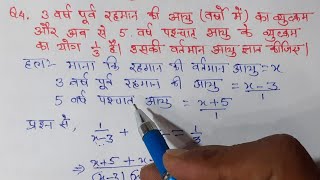 Q4. 3 वर्ष पूर्व रहमान की आयु (वर्षों में) का व्युत्क्रम
और अब से 5 वर्ष पश्चात आयु के व्युत्क्रम
का योग 1/3 है। इसकी वर्तमान आयु ज्ञात कीजिए।
हल:- माना कि रहमान की वर्तमान आयु = x
3 वर्ष पूर्व रहमान की आयु = x-3/1
5 वर्ष पश्चात आयु = x+5/1
प्रश्न से, 1/x-3 + = 1/3
⇒ x+5 + x-